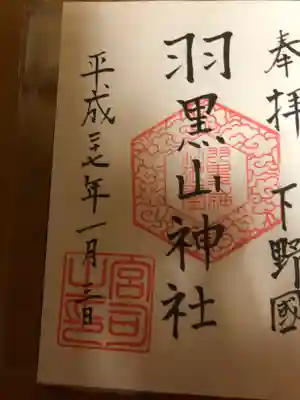 奉拝 下野國
羽黒山神社
平成二十七年一月三日
宮司之印